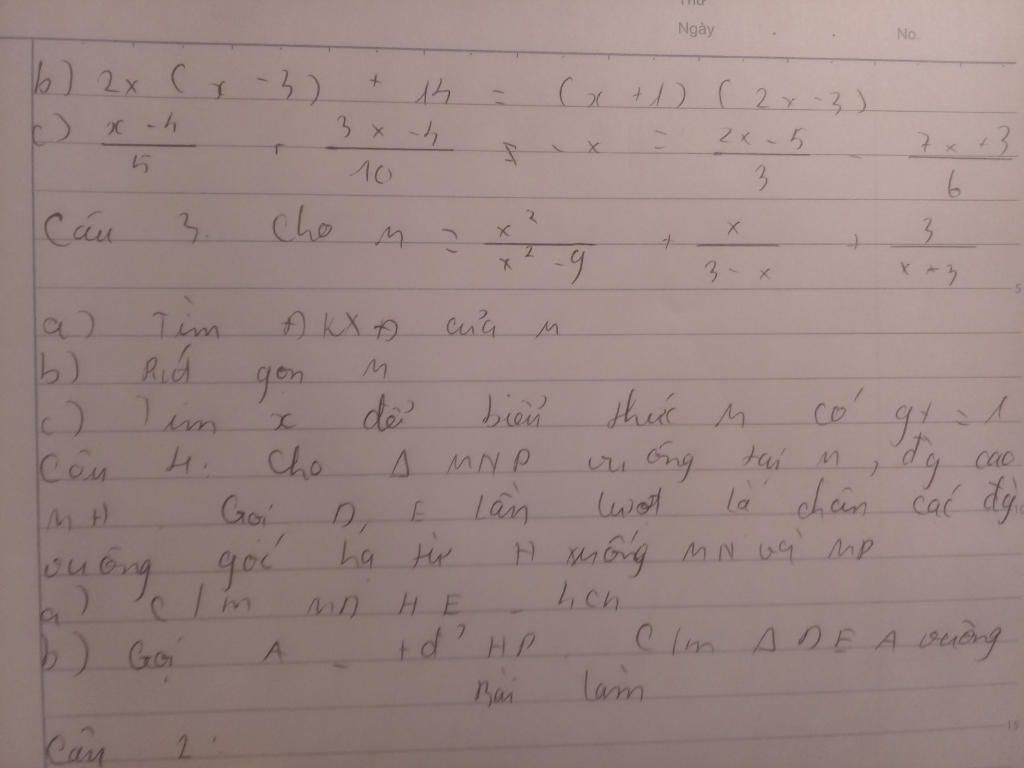 Thứ
Ngày . . No.
b) 2x (x - 3) + 14 = (x + 1) (2x - 3)
c) x - 4 / 5 + 3x - 4 / 10 - x = 2x - 5 / 3 - 7x + 3 / 6
Câu 3. Cho M = x² / x² - 9 + x / 3 - x + 3 / x + 3
5
a) Tìm ĐKXĐ của M
b) Rút gọn M
c) Tìm x để biểu thức M có gt = 1
Câu 4. Cho Δ MNP vuông tại M, đg cao
MH. Gọi D, E lần lượt là chân các đg
vuông góc hạ từ H xuống MN và MP
a) C/m MDHE - hcn
b) Gọi A - tđ HP. C/m Δ DEA vuông
Bài làm
Câu 2:
15